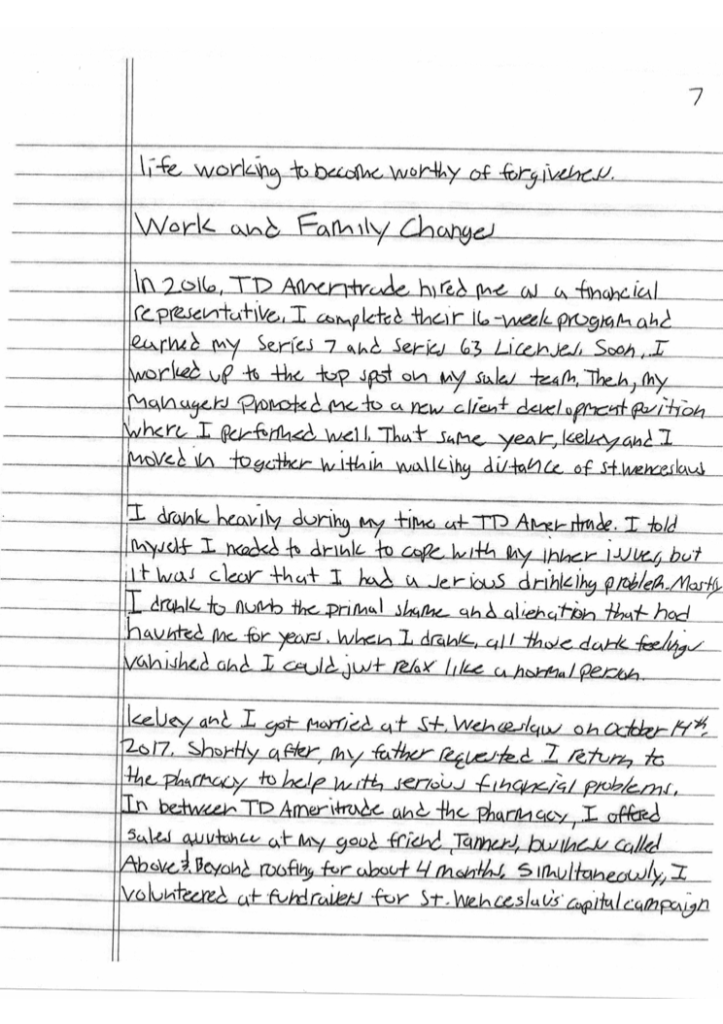 7
life working to become worthy of forgiveness.
Work and Family Changes
In 2016, TD Ameritrade hired me as a financial
representative. I completed their 16-week program and
earned my Series 7 and Series 63 Licenses. Soon, I
worked up to the top spot on my sales team. Then, my
managers promoted me to a new client development position
where I performed well. That same year, Kelsey and I
moved in together within walking distance of St. Wenceslaus
I drank heavily during my time at TD Ameritrade. I told
myself I needed to drink to cope with my inner issues, but
it was clear that I had a serious drinking problem. Mostly
I drank to numb the primal shame and alienation that had
haunted me for years. When I drank, all those dark feelings
vanished and I could just relax like a normal person.
Kelsey and I got married at St. Wenceslaus on October 14th,
2017. Shortly after, my father requested I return to
the pharmacy to help with serious financial problems.
In between TD Ameritrade and the pharmacy, I offered
sales assistance at my good friend, Tanners, business called
Above & Beyond roofing for about 4 months. Simultaneously, I
volunteered at fundraisers for St. Wenceslaus's capital campaign